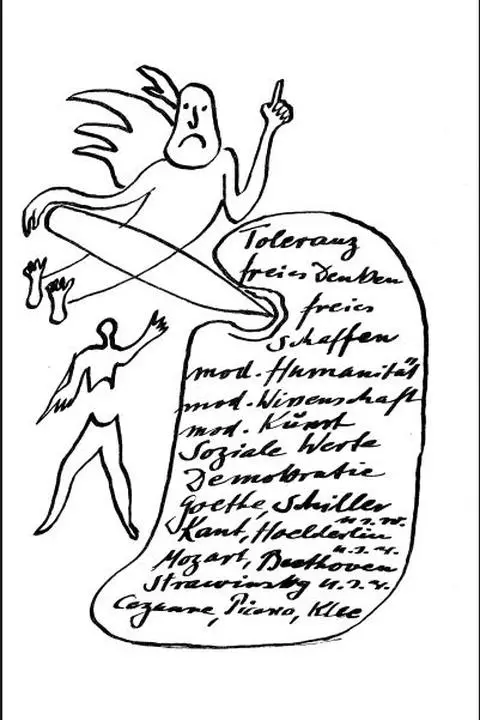 Toleranz
freies Denken
freies
Schaffen
mod. Humanität
mod. Wissenschaft
mod. Kunst
Soziale Werte
Demokratie
Goethe, Schiller
u.s.w.
Kant, Hoelderlin
u.s.w.
Mozart, Beethoven
Strawinsky u.s.w.
Cezanne, Picasso, Klee